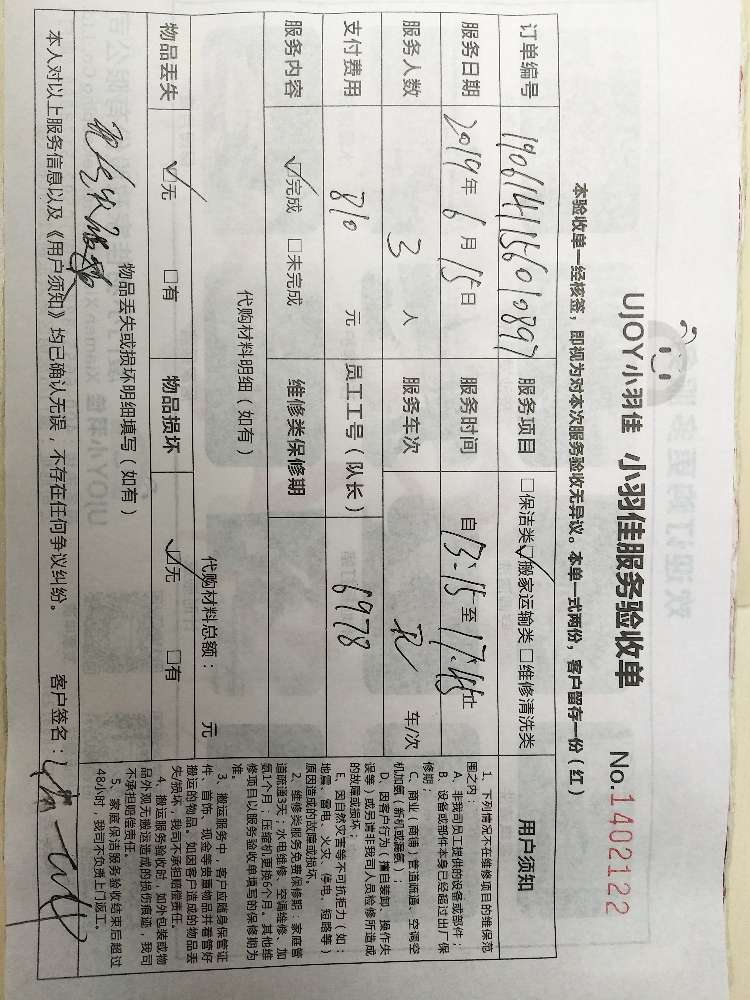 UJOY小羽佳 小羽佳服务验收单 No.1402122
本验收单一经核签，即视为对本次服务验收无异议。本单一式两份，客户留存一份（红）
订单编号 19061411560 10897 服务项目 □保洁类 ☑搬家运输类 □维修清洗类
服务日期 2019年6月15日 服务时间 自13:15至17:45止
服务人数 3 人 服务车次 车/次
支付费用 810 元 员工工号（队长） 6978
服务内容 ☑完成 □未完成 维修类保修期
代购材料明细（如有） 代购材料总额： 元
物品丢失 ☑无 □有 物品损坏 ☑无 □有
物品丢失或损坏明细填写（如有）
本人对以上服务信息以及《用户须知》均已确认无误，不存在任何争议纠纷。 客户签名：
用户须知
1、下列情况不在维修项目的维保范
围之内：
A、非我司员工提供的设备或部件；
B、设备或部件本身已经超过出厂保
修期；
C、商业（商铺）管道疏通、空调空
机加氨（新机或漏氨）；
D、因客户行为（擅自装卸、操作失
误等）或另请非我司人员检修所造成
的故障或损坏；
E、因自然灾害等不可抗拒力（如：
地震、雷电、火灾、停电、短路等）
原因造成的故障或损坏。
2、维修类服务免费保修期：家庭管
道疏通3天；水电维修、空调维修、加
氨1个月；压缩机更换6个月。其他维
修项目以服务验收单填写的保修期为
准。
3、搬运服务中，客户应随身保管证
件、首饰、现金等贵重物品并看管好
搬运的物品。如因客户造成的物品丢
失/损坏，我司不承担赔偿责任。
4、搬运服务验收时，如外包装或物
品外观无搬运造成的损伤痕迹，我司
不承担赔偿责任。
5、家庭保洁服务验收结束后超过
48小时，我司不负责上门返工。